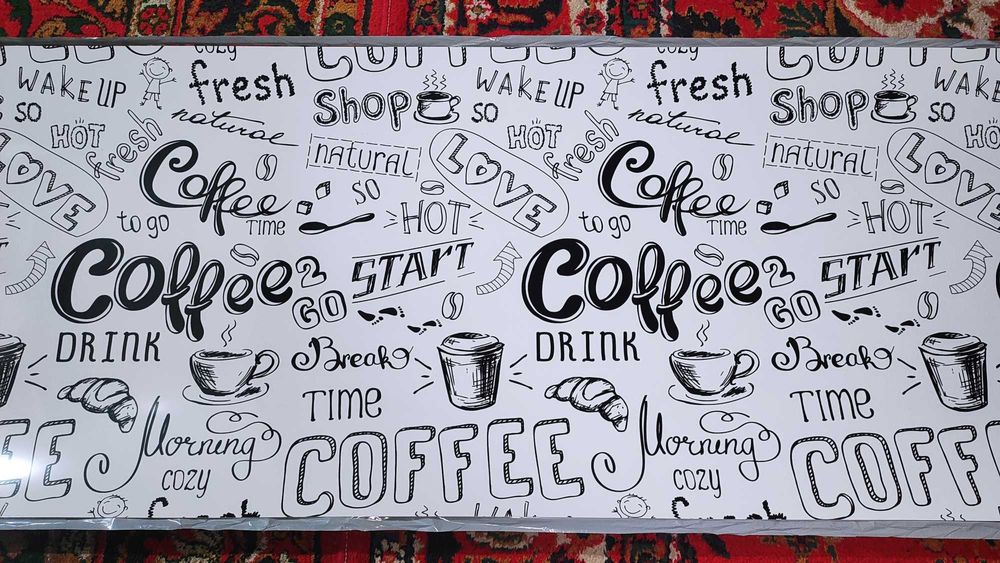 COFFEE COZY COFFEE COZY COFFEE
WAKE UP fresh WAKE UP fresh WAKE
SO Shop SO Shop SO
natural natural
HOT fresh HOT fresh HOT
LOVE Coffee TIME NATURAL LOVE Coffee TIME NATURAL LOVE
SO SO
to go HOT to go HOT
Coffee 2 GO START Coffee 2 GO START
DRINK Break DRINK Break
TIME TIME
Morning Morning
COFFEE COZY COFFEE COZY COFFEE
fresh fresh